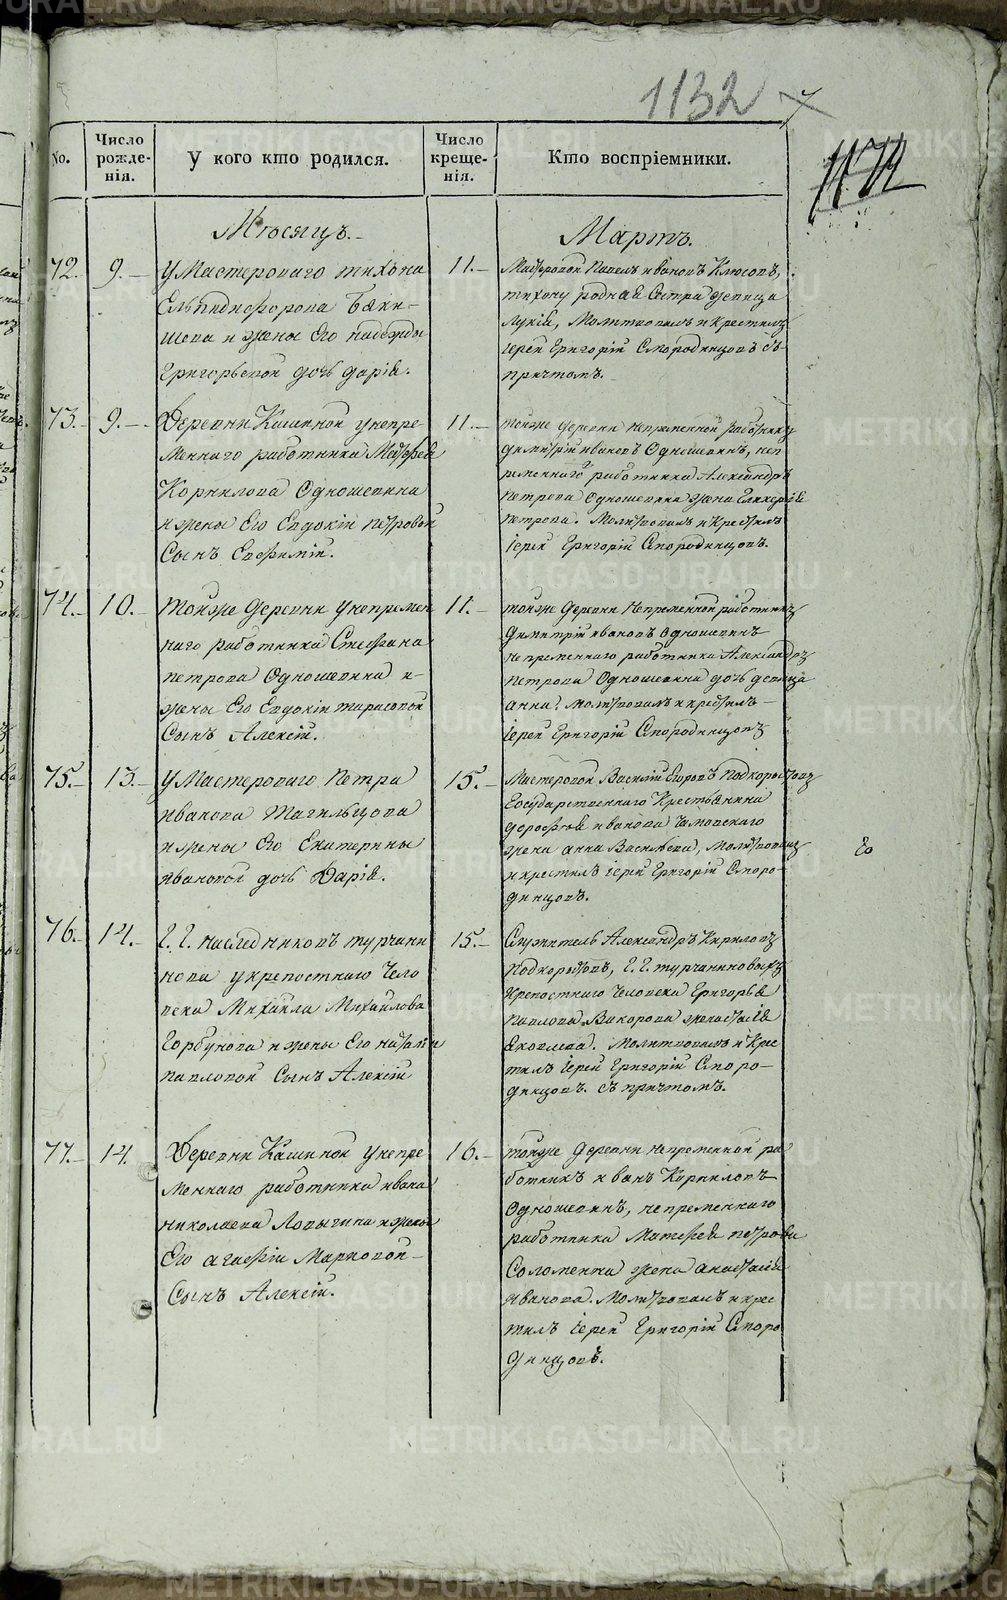 1132
1172
No.
Число рожде-нія.
У кого кто родился.
Число креще-нія.
Кто воспріемники.
Мѣсяцъ.
Мартъ.
72.
9.
У Мастероваго Тихона
Елпидифорова
шева и жены Его Надежды
Григорьевой дочь Дарія.
11.
Мастеровой Павелъ Ивановъ Клюсовъ,
Тихону родная сестра девица
Лукія, Молитвовалъ и крестилъ
Іерей Григорій Смородинцовъ съ
причтомъ.
73.
9.
Деревни Кашиной у непре-
меннаго работника Матфея
Корнилова Одношевина
и жены Его Евдокіи Петровой
Сынъ Евфимій.
11.
Тойже деревни Непременной работникъ
Димитрій Ивановъ Одношевинъ, неп
ременнаго работника Александра
Петрова Одношевина жена Гликерія
Петрова. Молитвовалъ и крестилъ
Іерей Григорій Смородинцовъ.
74.
10.
Тойже деревни у непремен
наго работника Стефана
Петрова Одношевина и
жены Его Евдокіи Тарасовой
Сынъ Алексій.
11.
Тойже деревни Непременной работникъ
Димитрій Ивановъ Одношевинъ
непременнаго работника Александра
Петрова Одношевина дочь девица
Анна. Молитвовалъ и крестилъ
Іерей Григорій Смородинцовъ
75.
13.
У Мастероваго Петра
Иванова Тагильцова
и жены Его Екатерины
Ивановой дочь Дарія.
15.
Мастеровой Василій Егоровъ Подкорытовъ
Государственнаго Крестьянина
Дорофея Иванова
жена Анна Васильева, Молитвовалъ
и крестилъ Іерей Григорій Сморо-
динцовъ.
76.
14.
Г. Г. наследниковъ Турчани
нова у крепостнаго Чело
века Михаила Михайлова
Горбунова и жены Его Наталіи
Павловой Сынъ Алексій
15.
Служитель Александръ Кириловъ
Подкорытовъ, Г. Г. Турчаниновыхъ
крепостнаго Человека Григорья
Павлова
Яковлева. Молитвовалъ и крес
тилъ Іерей Григорій Сморо-
динцовъ съ причтомъ.
77.
14.
Деревни Кашиной у непре
меннаго работника Ивана
Николаева Лопыгина и жены
Его Агафіи Марковой
Сынъ Алексій.
16.
Тойже деревни непременной ра
ботникъ Иванъ Корниловъ
Одношевинъ, непременнаго
работника Матфея Петрова
Соломеина жена Анастасія
Иванова. Молитвовалъ и крес
тилъ Іерей Григорій Сморо
динцовъ.
METRIKI.GASO-URAL.RU